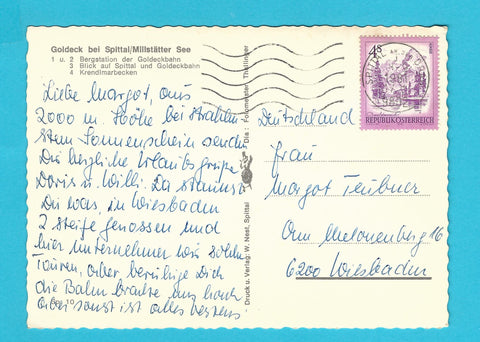 Goldeck bei Spittal/Millstätter See
1 u. 2 Bergstation der Goldeckbahn
3 Blick auf Spittal und Goldeckbahn
4 Krendlmarbecken
Liebe Margot, aus
2000 m Höhe bei strahlen-
stem Sonnenschein sende
Dir herzliche Urlaubsgrüße
Doris u. Willi. Da staunst
Du was, in Wiesbaden
2 steife Genossen und
hier unternehmen wir solche
Touren, aber beruhige Dich
die Bahn brachte uns hoch
aber sonst ist alles bestens
Druck u. Verlag: W. Nest, Spittal
Dia: Fotomeister Thallinger
4 S
SPITTAL AN DER
REPUBLIK ÖSTERREICH
Deutschland
Frau
Margot Teubner
Am Melonenberg 16
6200 Wiesbaden